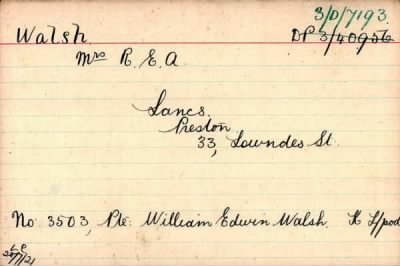 3/D/7193.
Walsh. DP 3/40956
Mrs R. E. A.
Lancs.
Preston
33, Lowndes St.
No 3503, Pte: William Edwin Walsh. K L/pool
20/7/21